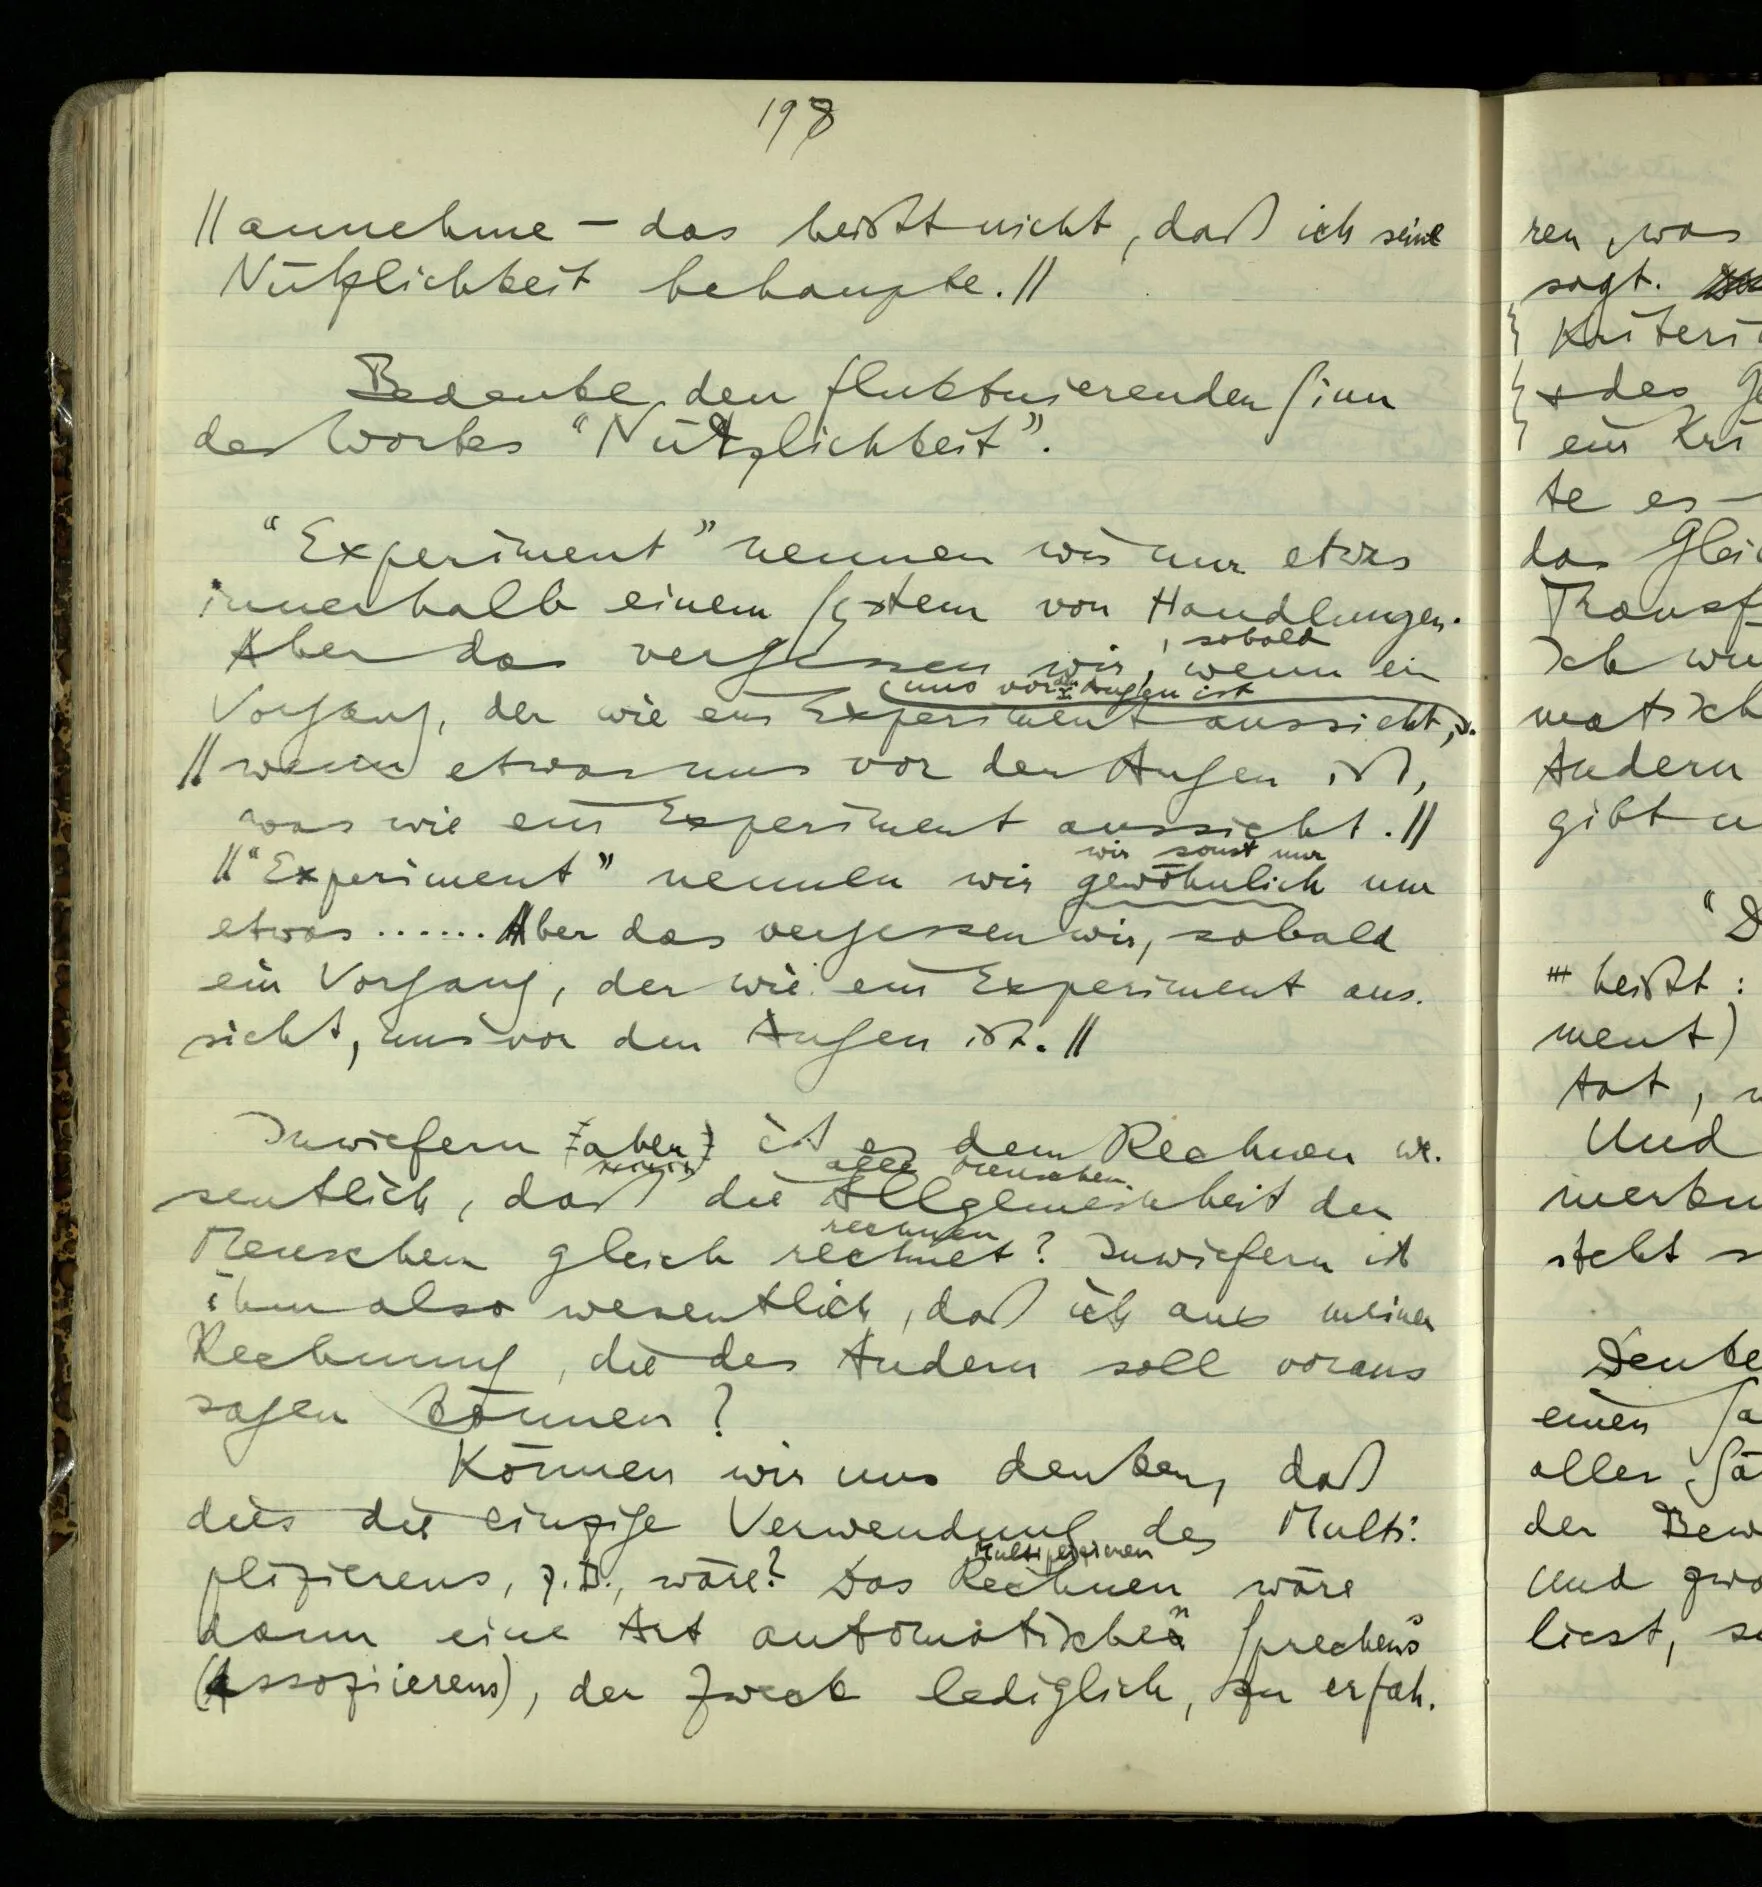 198
|| annehme – das heißt nicht, daß ich seine
Nützlichkeit behaupte. ||
Bedenke den fluktuierenden Sinn
des Wortes “Nützlichkeit”.
“Experiment” nennen wir nur etwas
innerhalb einem System von Handlungen.
, sobald
Aber das vergessen wir, wenn ein
uns vor den Augen ist
Vorgang, der wie ein Experiment aussieht,
|| wenn etwas uns vor den Augen ist,
was wie ein Experiment aussieht. ||
wir sonst nur
|| “Experiment” nennen wir gewöhnlich nur
etwas ...... Aber das vergessen wir, sobald
ein Vorgang, der wie ein Experiment aus-
sieht, uns vor den Augen ist. ||
Inwiefern aber ist es dem Rechnen we-
alle Menschen
sentlich, daß die Allgemeinheit der
rechnen
Menschen gleich rechnet? Inwiefern ist
ihm also wesentlich, daß ich aus meiner
Rechnung, die des Andern soll voraus
sagen können?
Können wir uns denken, daß
dies die einzige Verwendung des Multi-
Multiplizieren
plizierens, z.B., wäre? Das Rechnen wäre
dann eine Art automatischen Sprechens
(Assoziierens), der Zweck lediglich, zu erfah-
ren, was
sagt.
Kriteri
des Ge
ein Kri
te es –
das Gleic
Transf
Ich wu
matisch
Andern
gibt u
“D
heißt:
ment)
tat, w
Und
merku
steht s
Denke
einen Sa
aller Sä
der Bew
und zwa
liest, so